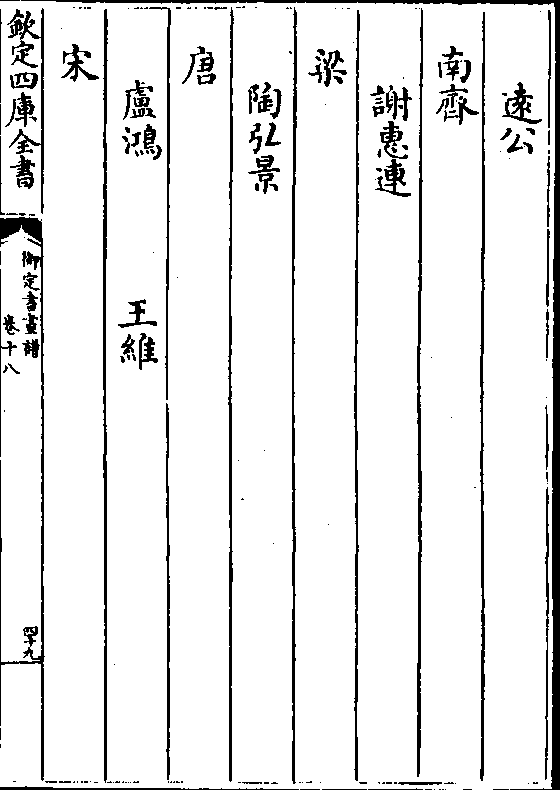 遠公
南齊
謝惠連
梁
陶弘景
唐
盧鴻　王維
宋
欽定四庫全書
御定書畫譜
卷十八
四十九